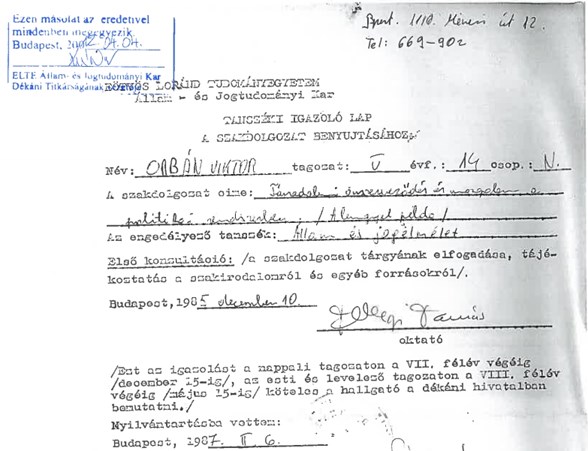 Ezen másolat az eredetivel
mindenben megegyezik.
Budapest, 2012.04.04.
ELTE Állam- és Jogtudományi Kar
Dékáni Titkárságának
Bpest. 1118. Ménesi út 12.
Tel: 669-902
EÖTVÖS LORÁND TUDOMÁNYEGYETEM
Állam - és Jogtudományi Kar
TANSZÉKI IGAZOLÓ LAP
A SZAKDOLGOZAT BENYUJTÁSÁHOZ
Név: ORBÁN VIKTOR tagozat: V évf.: 14 csop.: N.
A szakdolgozat címe: Társadalmi önszerveződés és mozgalom a
politikai rendszerben. /A lengyel példa/
Az engedélyező tanszék: Állam és jogelmélet
Első konsultáció: /a szakdolgozat tárgyának elfogadása, tájé-
koztatás a szakirodalomról és egyéb forrásokról/.
Budapest, 1985 december 10.
Fellegi Tamás
oktató
/Ezt az igazolást a nappali tagozaton a VII. félév végéig
/december 15-ig/, az esti és levelező tagozaton a VIII. félév
végéig /május 15-ig/ köteles a hallgató a dékáni hivatalban
bemutatni./
Nyilvántartásba vettem:
Budapest, 1987. II. 6.